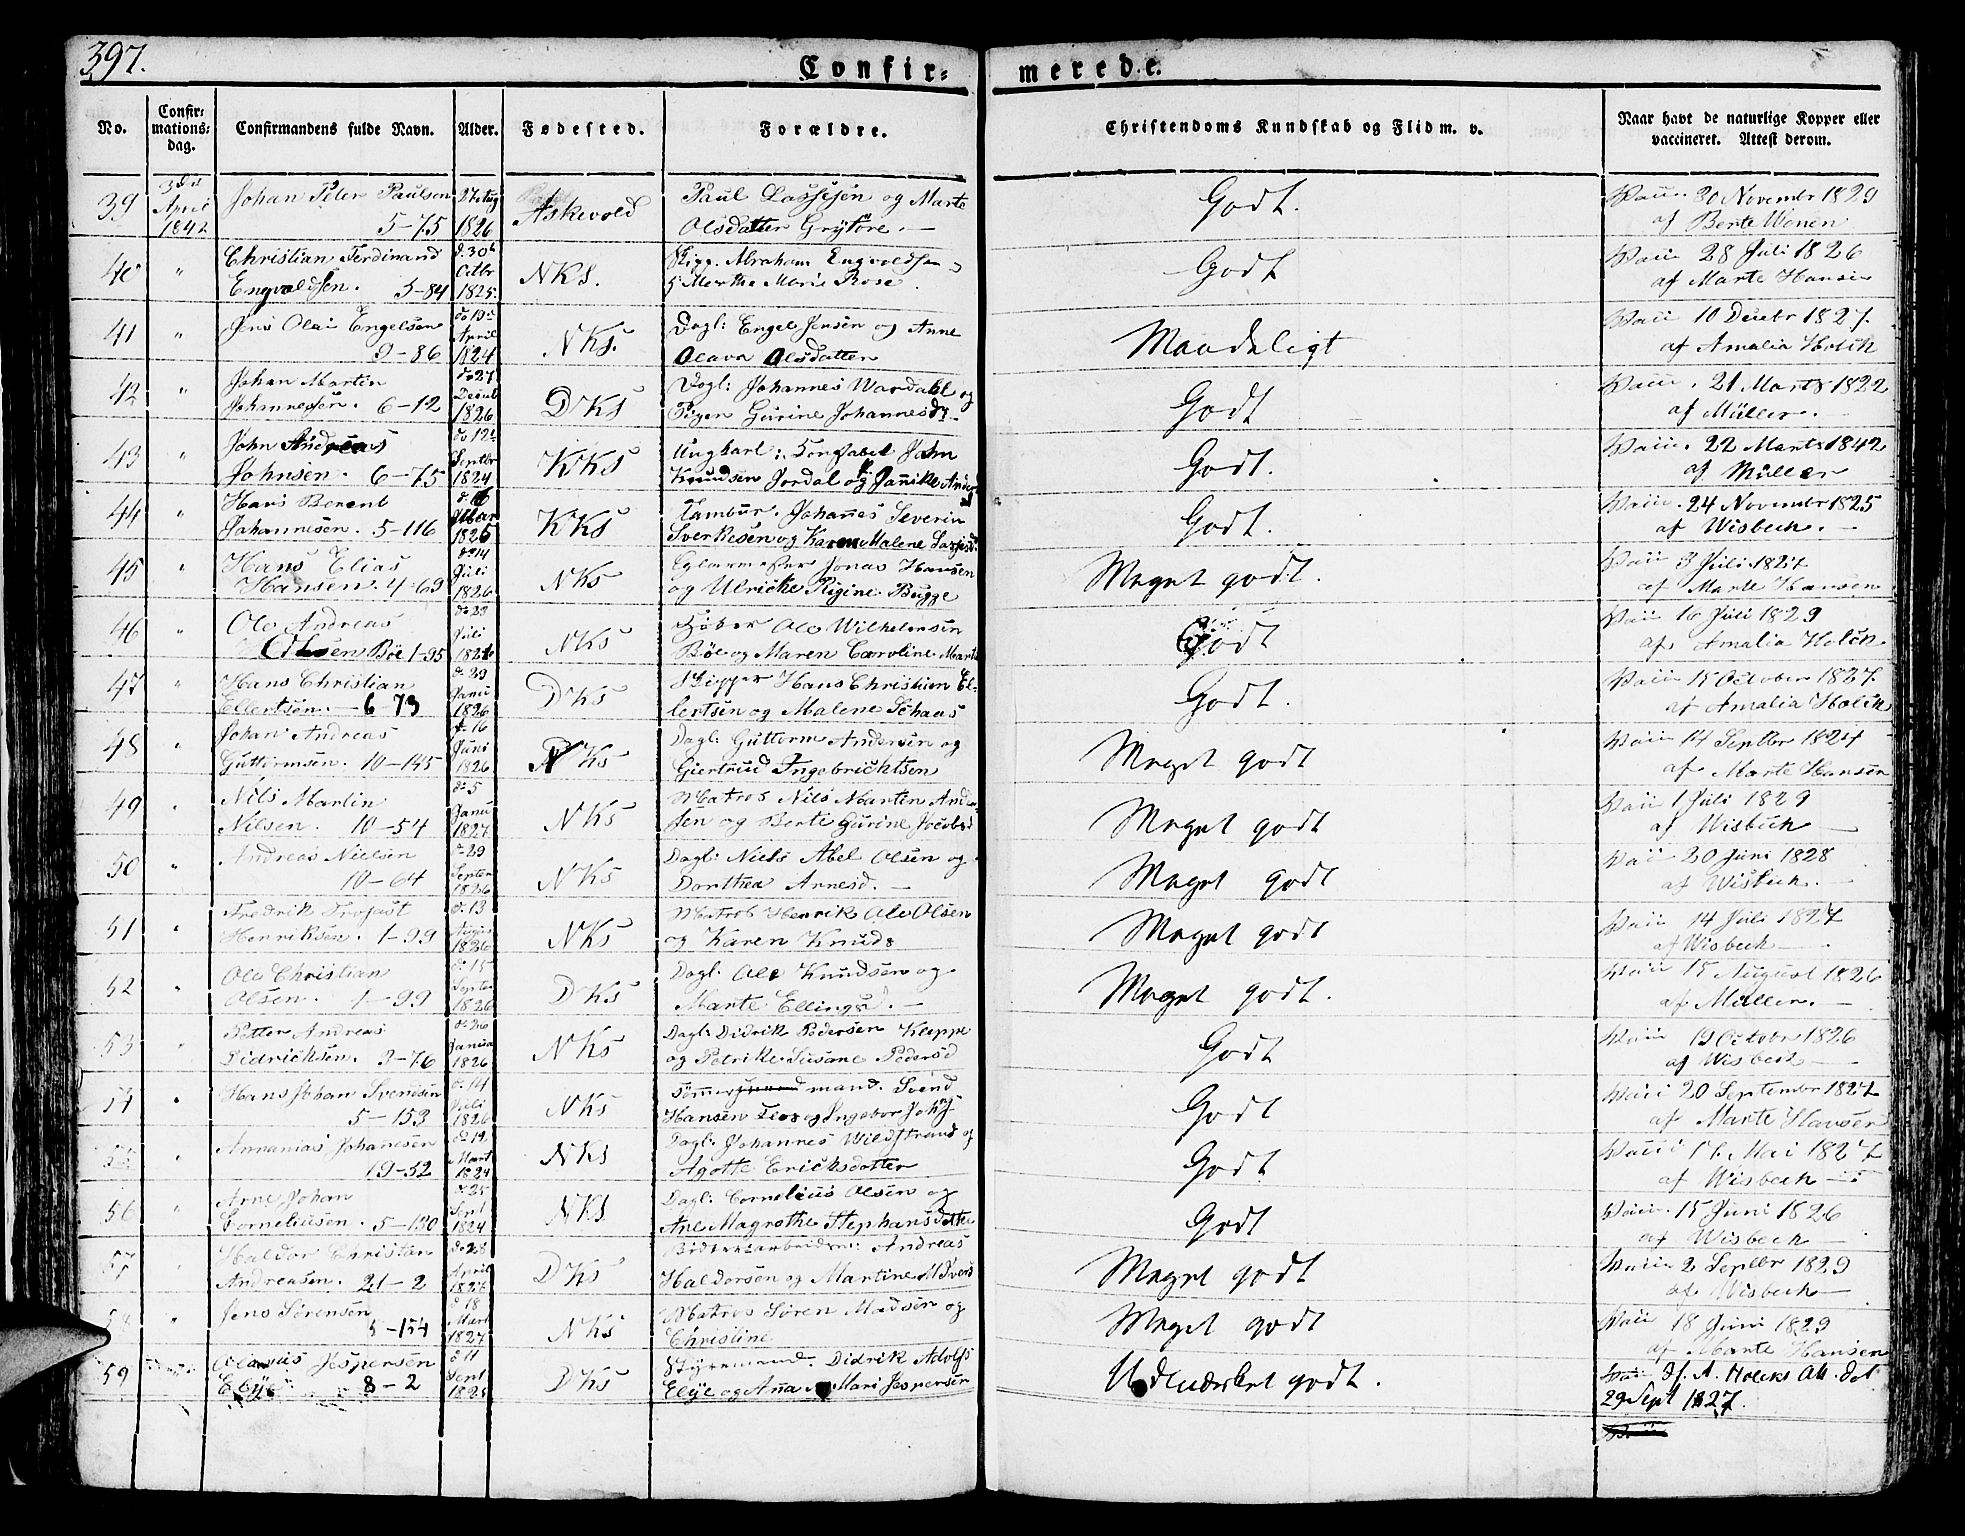 397.
Confir= merede.
No. Confir= mations= dag. Confirmandens fulde Navn. Alder. Fødested. Forældre. Christendoms Kundskab og Flid m. v. Naar havt de naturlige Kopper eller vaccineret. Attest derom.
39 3die April 1842 Johan Peter Paulsen 5-75 1826 Askevold Paul Lassesen og Marte Olsdatter Grytøre. Godt. Vacc. 30 Novembr 1829 af Berte Wonen
40 " Christian Ferdinand Engvoldsen. 5-84 d. 30 Octbr 1825. NKS. Skipp. Abraham Engvoldsen Merthe Marie Rose Godt Vacc 28 Juli 1826 af Marte Hansen
41 " Jens Olai Engelsen 9-86 April 1824 NKS. Dagl: Engel Jensen og Anne Olava Olsdatter Maadeligt Vacc 10 Decbr 1827. af Amalia Holck
42 " Johan Martin Johannesen. 6-12 do 27 Decbr 1826 DKS Dagl: Johannes Wardahl og Pigen Gurine Johannesd. Godt Vacc. 21 Marts 1822 af Müller.
43 " John Andreas Johnsen. 6-75 do 12 Septbr 1824 KKS Ungkarl: John Knudsen Jordal og Janikke Godt. Vacc. 22 Marts 1842 af Müller
44 " Hans Berent Johannesen. 5-116 Mar 1826 KKS Tambur. Johanes Severin Sverkesen og Karen Malene Godt. Vacc. 24 Novembr 1825 af Wisbech.
45 " Hans Elias Hansen. 4-69 do 14 Juli 1826 NKS Glarmester Jonas Hansen og Ulricke Rigine Bugge Meget godt. Vacc 3 Juli 1827 af Marte Hansen
46 " Ole Andreas Olsen Böe 1-95 Juli 1826 NKS Ole Wilhelmsen Böe og Maren Caroline Godt Vacc 16 Juli 1829 af Amalia Holck
47 " Hans Christian Ellertsen. 6-73 Janu 1826 DKS Skipper Hans Christian Ellertsen og Malene Schaas Godt. Vacc 15 October 1827. af Amalia Holck
48 " Johan Andreas Guttormsen. 10-145 d. 16 Juni 1826 NKS Dagl: Guttorm Andersen og Giertrud Ingebrichtsen Meget godt Vacc 14 Septbr 1827 af Marte Hansen
49 " Nils Martin Nilsen. 10-54 d. 5 Janu 1827. NKS Matros Nils Martin og Berte Gurine Jacobsd Meget godt Vacc 1 Juli 1829 af Wisbech
50 " Andreas Nielsen 10-64 d. 29 Septer 1826 NKS Dagl: Niels Abel Olsen og Dorthea Arnesd. Meget godt Vacc 20 Juni 1828 af Wisbech.
51 " Fredrik Trofast Henriksen. 1-99 d. 13 1826 NKS Matros Henrik Ole Olsen og Karen Knuds Meget godt Vacc 14 Juli 1827 af Wisbech
52 " Ole Christian Olsen. 1-99 d. 15 Septer 1826 DKS Dagl: Ole Knudsen og Marte Ellingsd. Meget godt. Vacc 15 August 1826 af Müller.
53 " Petter Andreas Didricksen. 3-76 d. 26 Janua 1826 NKS Dagl: Didrik Pedersen Kleppe og Petrike Susane Pedersd Godt Vacc 19 Octobr 1826 af Wisbech
54 " Hans Johan Svendsen 5-153 d. 14 Juli 1826 NKS Tømmermand. Svend Hansen og Ingebor Godt Vacc 20 Septembr 1827 af Marte Hansen
55 " Annanias Johanesen 19-52 do 19. Mart 1824 NKS Dagl: Johannes Wildstrand og Agotte Ericksdatter Godt Vacc Mai 1827 af Wisbech
56 " Arne Johan Corneliusen. 5-130 d. 25 Sept 1824 NKS Dagl: Cornelius Olsen og Ane Magrethe Stephansdatter Godt Vacc. 15 Juni 1826 af Wisbech
57 " Haldor Christian Andreasen. 21-2 do 28 April 1827 DKS Andreas Haldorsen og Martine Meget godt Vacc 2 Septbr 1829 af Wisbech
58 " Jens Sørensen 5-154 d. 18 Mart 1827 NKS Matros Søren Madsen og Christine Meget godt Vacc 18 Juni 1829 af Marte Hansen
59 Olavus Jespersen Elije 8-2 d. 11 Sept 1825 DKS Styrmand. Didrik Adolfs Elije og Anna Mari Jespersen Udmærket godt. Vacc. Holcks Att. dat 29 Sept 1827.